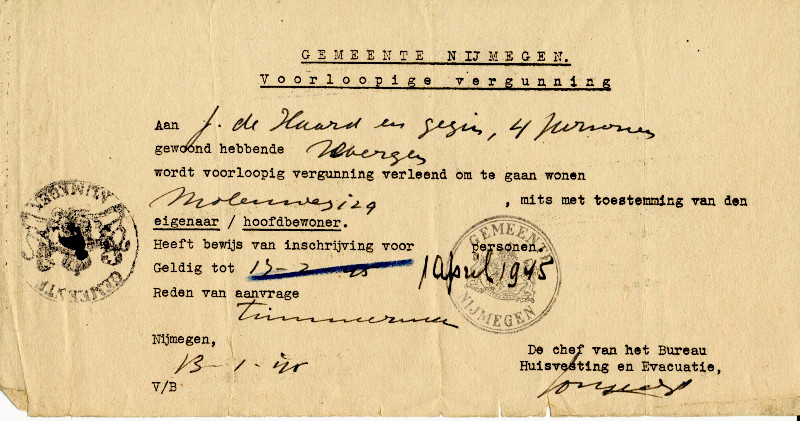 GEMEENTE NIJMEGEN.
Voorloopige vergunning
Aan J. de Haard en gezin, 4 personen
gewoond hebbende
wordt voorloopig vergunning verleend om te gaan wonen
Molenweg 129 , mits met toestemming van den
eigenaar / hoofdbewoner.
Heeft bewijs van inschrijving voor personen.
Geldig tot 15-2-45 1 April 1945
Reden van aanvrage
timmerman
Nijmegen,
13-1-45
De chef van het Bureau
Huisvesting en Evacuatie,
V/B
GEMEENTE NIJMEGEN
GEMEENTE NIJMEGEN